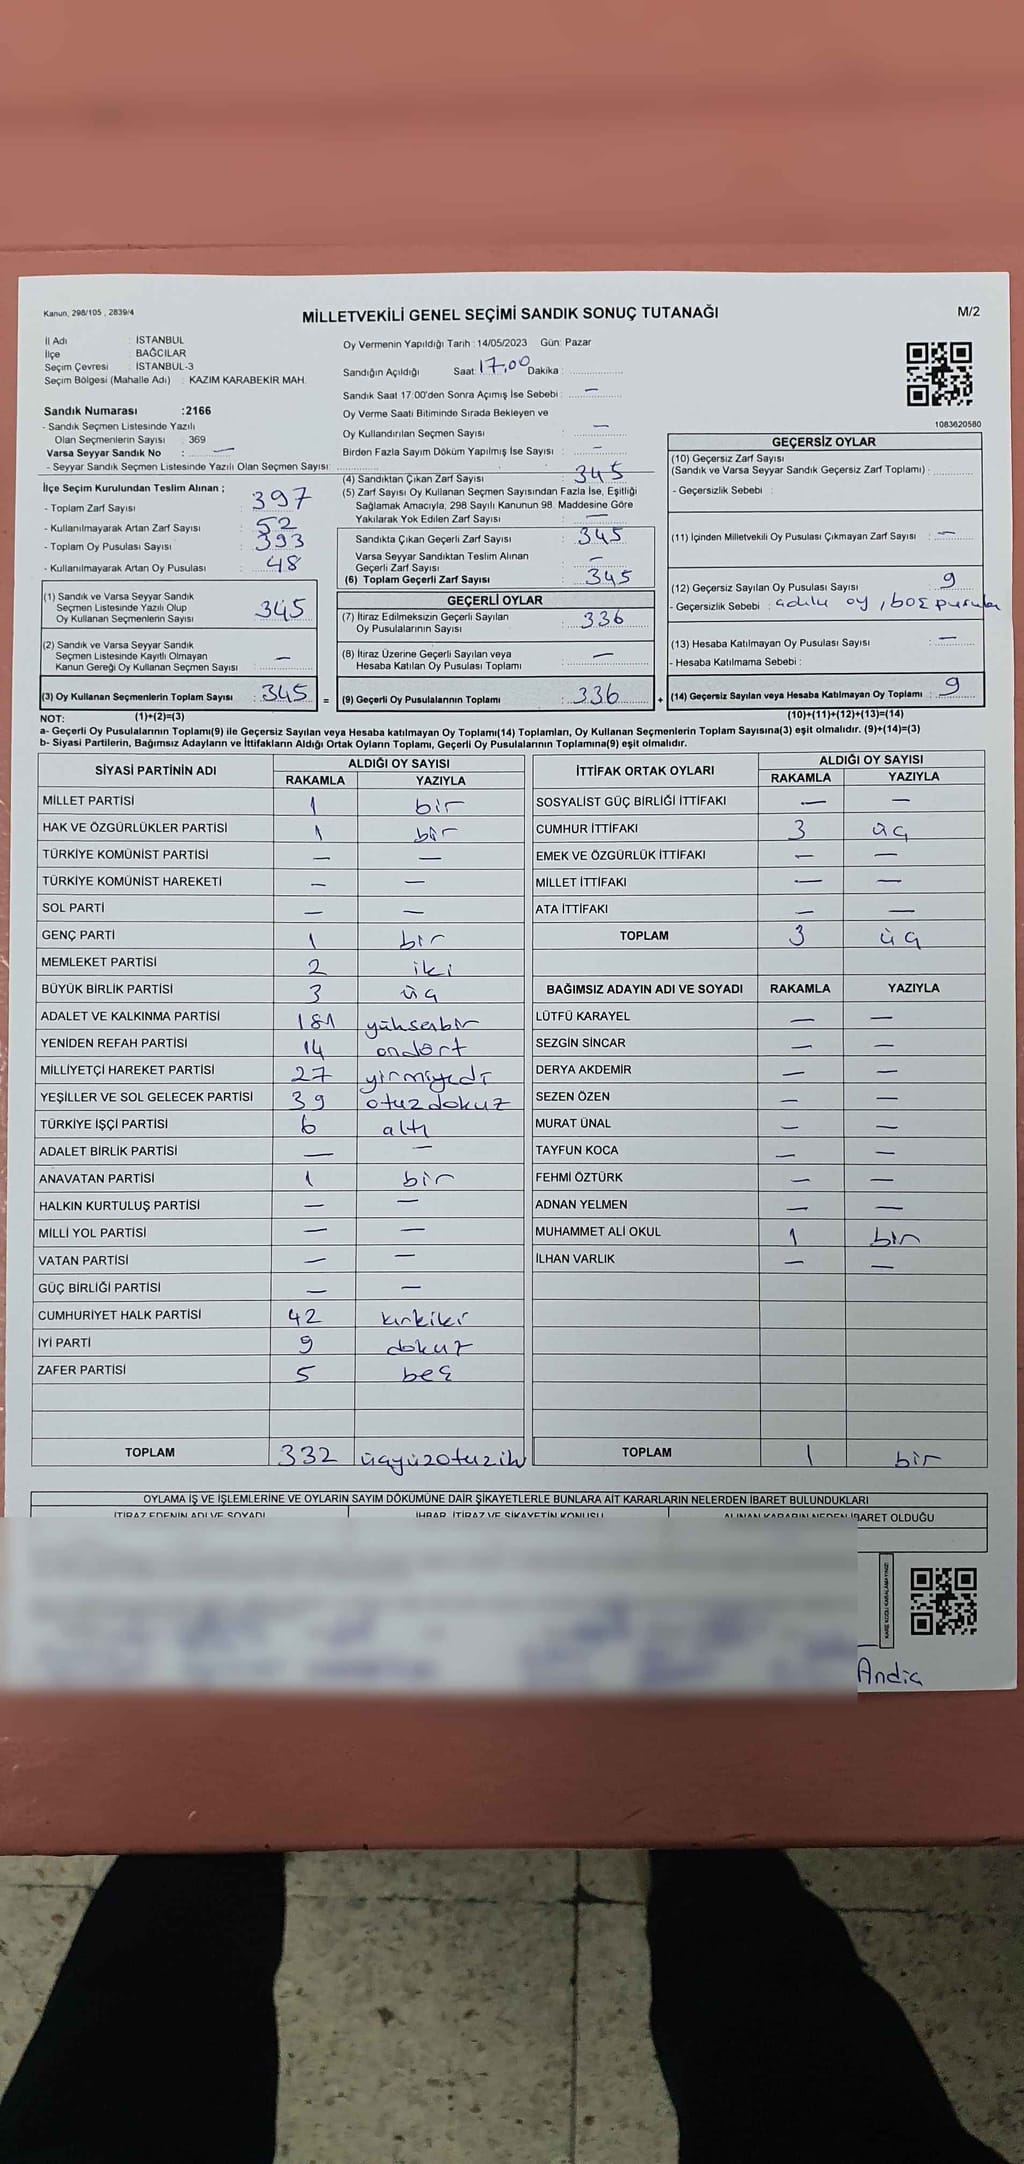 Kanun, 298/105 , 2839/4
MİLLETVEKİLİ GENEL SEÇİMİ SANDIK SONUÇ TUTANAĞI
M/2
İl Adı : İSTANBUL
İlçe : BAĞCILAR
Seçim Çevresi : İSTANBUL-3
Seçim Bölgesi (Mahalle Adı) : KAZIM KARABEKİR MAH.
Sandık Numarası :2166
- Sandık Seçmen Listesinde Yazılı
Olan Seçmenlerin Sayısı : 369
Varsa Seyyar Sandık No : —
- Seyyar Sandık Seçmen Listesinde Yazılı Olan Seçmen Sayısı:
İlçe Seçim Kurulundan Teslim Alınan ;
- Toplam Zarf Sayısı : 397
- Kullanılmayarak Artan Zarf Sayısı : 52
- Toplam Oy Pusulası Sayısı : 393
- Kullanılmayarak Artan Oy Pusulası : 48
(1) Sandık ve Varsa Seyyar Sandık
Seçmen Listesinde Yazılı Olup
Oy Kullanan Seçmenlerin Sayısı : 345
(2) Sandık ve Varsa Seyyar Sandık
Seçmen Listesinde Kayıtlı Olmayan
Kanun Gereği Oy Kullanan Seçmen Sayısı : —
(3) Oy Kullanan Seçmenlerin Toplam Sayısı : 345 =
Oy Vermenin Yapıldığı Tarih : 14/05/2023 Gün: Pazar
Sandığın Açıldığı Saat: 17,00 Dakika :
Sandık Saat 17:00'den Sonra Açılmış İse Sebebi : —
Oy Verme Saati Bitiminde Sırada Bekleyen ve
Oy Kullandırılan Seçmen Sayısı : —
Birden Fazla Sayım Döküm Yapılmış İse Sayısı : —
(4) Sandıktan Çıkan Zarf Sayısı : 345
(5) Zarf Sayısı Oy Kullanan Seçmen Sayısından Fazla İse, Eşitliği
Sağlamak Amacıyla, 298 Sayılı Kanunun 98. Maddesine Göre
Yakılarak Yok Edilen Zarf Sayısı : —
Sandıkta Çıkan Geçerli Zarf Sayısı : 345
Varsa Seyyar Sandıktan Teslim Alınan
Geçerli Zarf Sayısı : —
(6) Toplam Geçerli Zarf Sayısı : 345
GEÇERLİ OYLAR
(7) İtiraz Edilmeksizin Geçerli Sayılan
Oy Pusulalarının Sayısı : 336
(8) İtiraz Üzerine Geçerli Sayılan veya
Hesaba Katılan Oy Pusulası Toplamı : —
(9) Geçerli Oy Pusulalarının Toplamı : 336 +
1083620580
GEÇERSİZ OYLAR
(10) Geçersiz Zarf Sayısı
(Sandık ve Varsa Seyyar Sandık Geçersiz Zarf Toplamı) :
- Geçersizlik Sebebi :
(11) İçinden Milletvekili Oy Pusulası Çıkmayan Zarf Sayısı : —
(12) Geçersiz Sayılan Oy Pusulası Sayısı : 9
- Geçersizlik Sebebi : adılu oy , boş pusula
(13) Hesaba Katılmayan Oy Pusulası Sayısı : —
- Hesaba Katılmama Sebebi :
(14) Geçersiz Sayılan veya Hesaba Katılmayan Oy Toplamı : 9
NOT: (1)+(2)=(3) (10)+(11)+(12)+(13)=(14)
a- Geçerli Oy Pusulalarının Toplamı(9) ile Geçersiz Sayılan veya Hesaba katılmayan Oy Toplamı(14) Toplamları, Oy Kullanan Seçmenlerin Toplam Sayısına(3) eşit olmalıdır. (9)+(14)=(3)
b- Siyasi Partilerin, Bağımsız Adayların ve İttifakların Aldığı Ortak Oyların Toplamı, Geçerli Oy Pusulalarının Toplamına(9) eşit olmalıdır.
SİYASİ PARTİNİN ADI ALDIĞI OY SAYISI
RAKAMLA YAZIYLA
MİLLET PARTİSİ 1 bir
HAK VE ÖZGÜRLÜKLER PARTİSİ 1 bir
TÜRKİYE KOMÜNİST PARTİSİ — —
TÜRKİYE KOMÜNİST HAREKETİ — —
SOL PARTİ — —
GENÇ PARTİ 1 bir
MEMLEKET PARTİSİ 2 iki
BÜYÜK BİRLİK PARTİSİ 3 üç
ADALET VE KALKINMA PARTİSİ 181 yükserbir
YENİDEN REFAH PARTİSİ 14 ondört
MİLLİYETÇİ HAREKET PARTİSİ 27 yirmiyedi
YEŞİLLER VE SOL GELECEK PARTİSİ 39 otuzdokuz
TÜRKİYE İŞÇİ PARTİSİ 6 altı
ADALET BİRLİK PARTİSİ — —
ANAVATAN PARTİSİ 1 bir
HALKIN KURTULUŞ PARTİSİ — —
MİLLİ YOL PARTİSİ — —
VATAN PARTİSİ — —
GÜÇ BİRLİĞİ PARTİSİ — —
CUMHURİYET HALK PARTİSİ 42 kırkiki
İYİ PARTİ 9 dokuz
ZAFER PARTİSİ 5 beş
TOPLAM 332 üçyüzotuziki
İTTİFAK ORTAK OYLARI ALDIĞI OY SAYISI
RAKAMLA YAZIYLA
SOSYALİST GÜÇ BİRLİĞİ İTTİFAKI — —
CUMHUR İTTİFAKI 3 üç
EMEK VE ÖZGÜRLÜK İTTİFAKI — —
MİLLET İTTİFAKI — —
ATA İTTİFAKI — —
TOPLAM 3 üç
BAĞIMSIZ ADAYIN ADI VE SOYADI RAKAMLA YAZIYLA
LÜTFÜ KARAYEL — —
SEZGİN SİNCAR — —
DERYA AKDEMİR — —
SEZEN ÖZEN — —
MURAT ÜNAL — —
TAYFUN KOCA — —
FEHMİ ÖZTÜRK — —
ADNAN YELMEN — —
MUHAMMET ALİ OKUL 1 bir
İLHAN VARLIK — —
TOPLAM 1 bir
OYLAMA İŞ VE İŞLEMLERİNE VE OYLARIN SAYIM DÖKÜMÜNE DAİR ŞİKAYETLERLE BUNLARA AİT KARARLARIN NELERDEN İBARET BULUNDUKLARI
İTİRAZ EDENİN ADI VE SOYADI İHBAR, İTİRAZ VE ŞİKAYETİN KONUSU ALINAN KARARIN NEDEN İBARET OLDUĞU
KARE KODU KARALAMAYINIZ!
Andiç